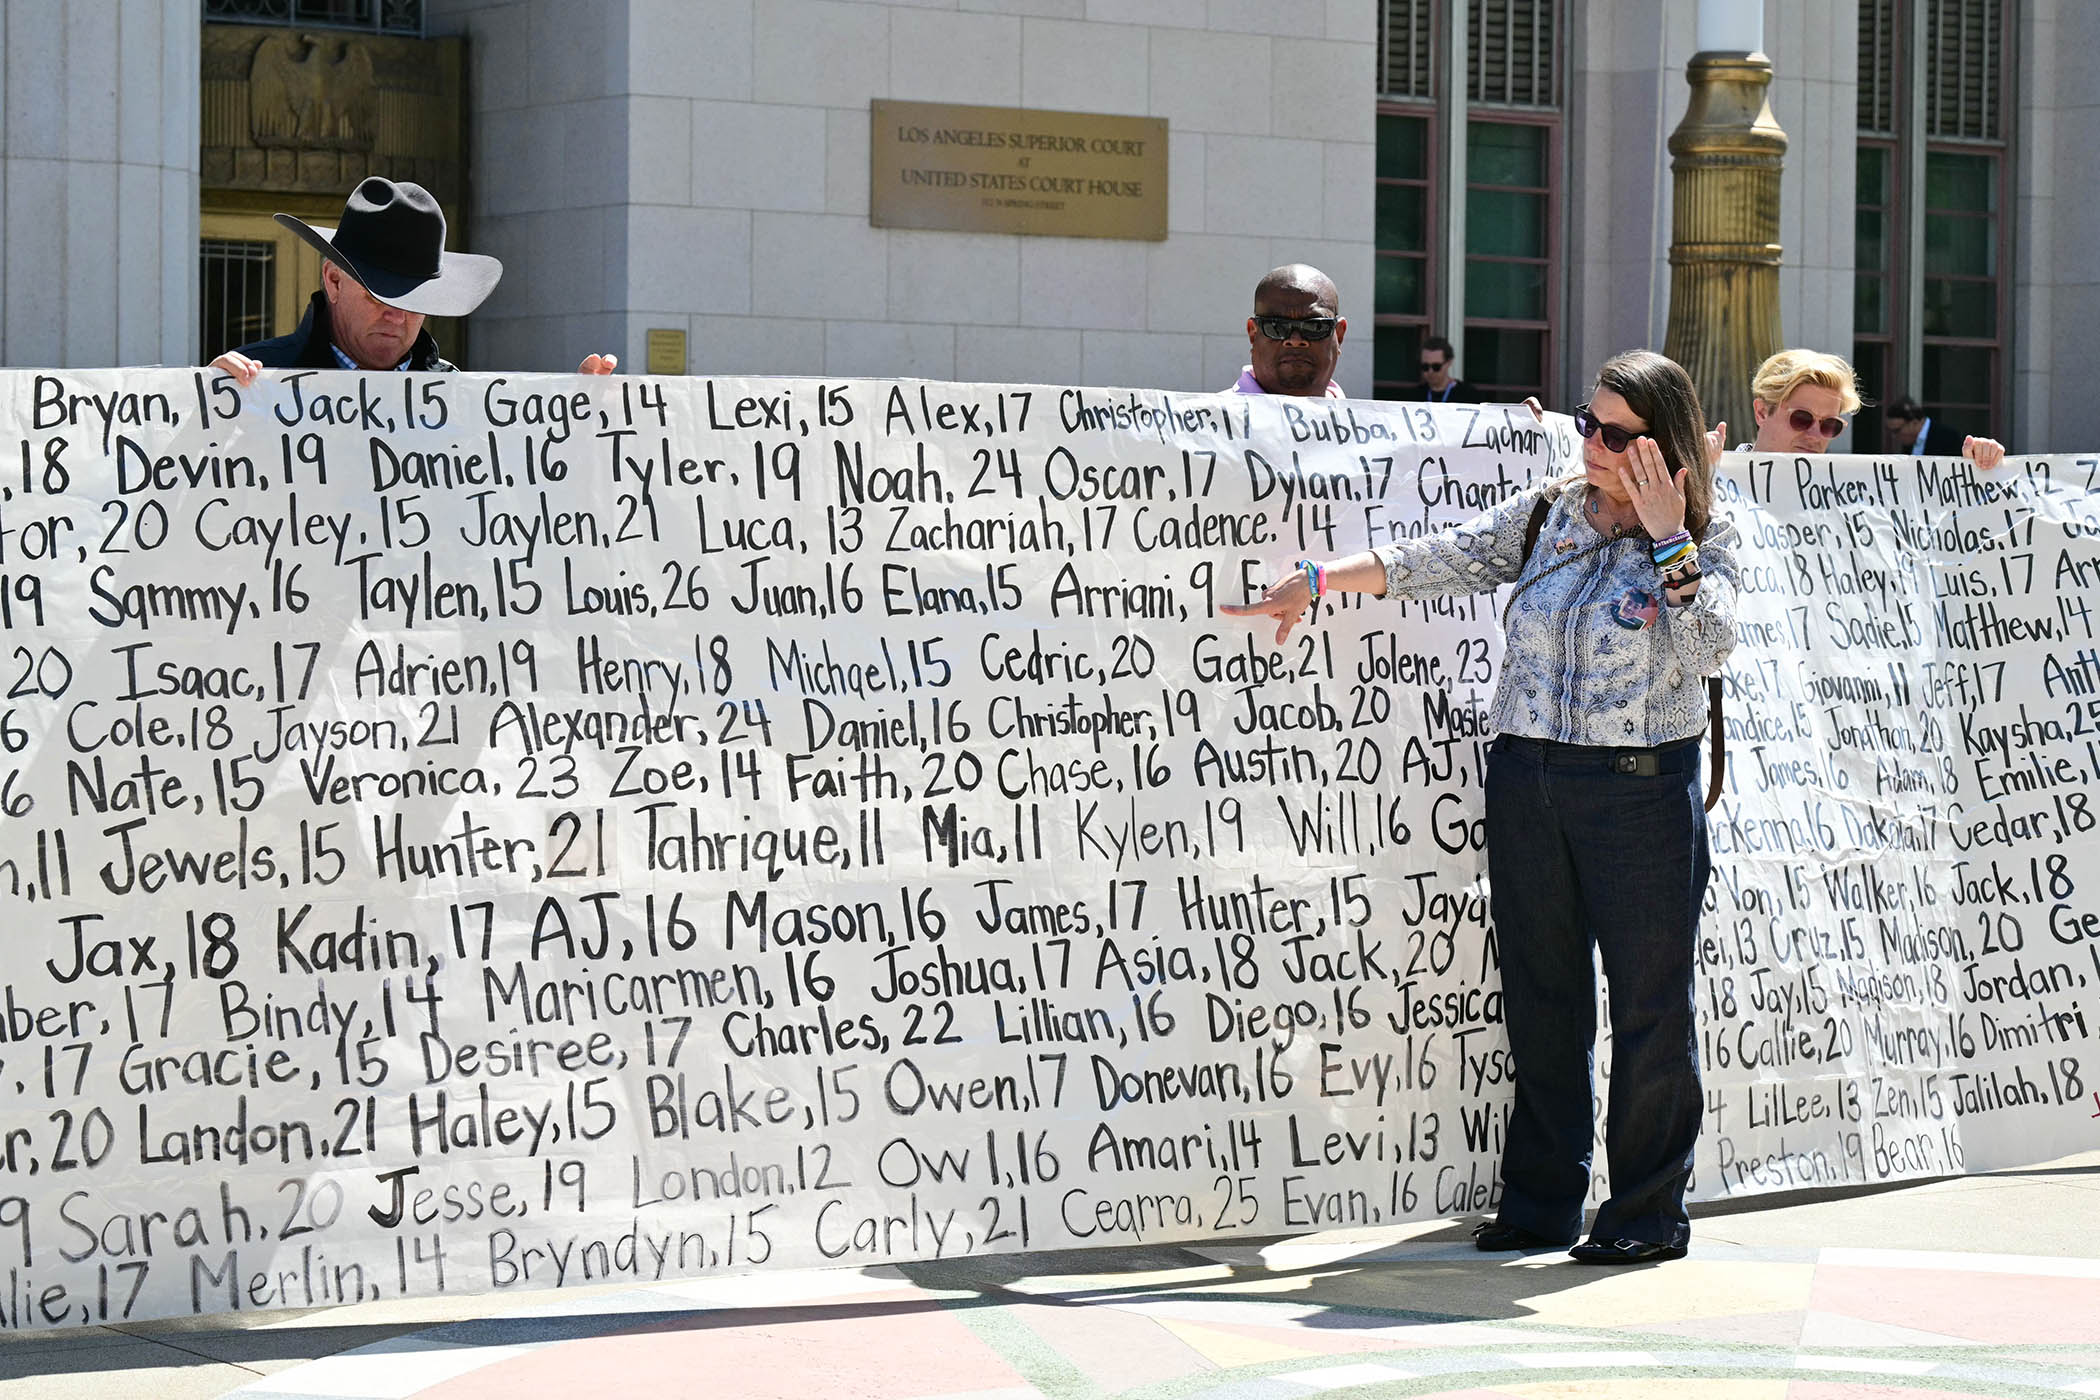 LOS ANGELES SUPERIOR COURT
AT
UNITED STATES COURT HOUSE
312 N SPRING STREET
Bryan, 15 Jack, 15 Gage, 14 Lexi, 15 Alex, 17 Christopher, 17 Bubba, 13 Zachary, 15
, 18 Devin, 19 Daniel, 16 Tyler, 19 Noah, 24 Oscar, 17 Dylan, 17
or, 20 Cayley, 15 Jaylen, 21 Luca, 13 Zachariah, 17 Cadence, 14
19 Sammy, 16 Taylen, 15 Louis, 26 Juan, 16 Elana, 15 Arriani, 9
20 Isaac, 17 Adrien, 19 Henry, 18 Michael, 15 Cedric, 20 Gabe, 21 Jolene, 23
6 Cole, 18 Jayson, 21 Alexander, 24 Daniel, 16 Christopher, 19 Jacob, 20
6 Nate, 15 Veronica, 23 Zoe, 14 Faith, 20 Chase, 16 Austin, 20 AJ,
, 11 Jewels, 15 Hunter, 21 Tahrique, 11 Mia, 11 Kylen, 19 Will, 16
Jax, 18 Kadin, 17 AJ, 16 Mason, 16 James, 17 Hunter, 15
ber, 17 Bindy, 14 Maricarmen, 16 Joshua, 17 Asia, 18 Jack, 20
, 17 Gracie, 15 Desiree, 17 Charles, 22 Lillian, 16 Diego, 16 Jessica
r, 20 Landon, 21 Haley, 15 Blake, 15 Owen, 17 Donevan, 16 Evy, 16
9 Sarah, 20 Jesse, 19 London, 12 Ow 1, 16 Amari, 14 Levi, 13
lie, 17 Merlin, 14 Bryndyn, 15 Carly, 21 Cearra, 25 Evan, 16 Caleb
17 Parker, 14 Matthew, 12
Jasper, 15 Nicholas, 17
18 Haley, 19 Luis, 17
ames, 17 Sadie, 15 Matthew, 14
17 Giovanni, 11 Jeff, 17
andice, 15 Jonathan, 20 Kaysha, 25
James, 16 Adam, 18 Emilie,
cKenna, 16 Dakota, 17 Cedar, 18
Von, 15 Walker, 16 Jack, 18
lei, 13 Cruz, 15 Madison, 20
, 18 Jay, 15 Madison, 18 Jordan,
16 Callie, 20 Murray, 16 Dimitri
4 LilLee, 13 Zen, 15 Jalilah, 18
Preston, 19 Bear, 16